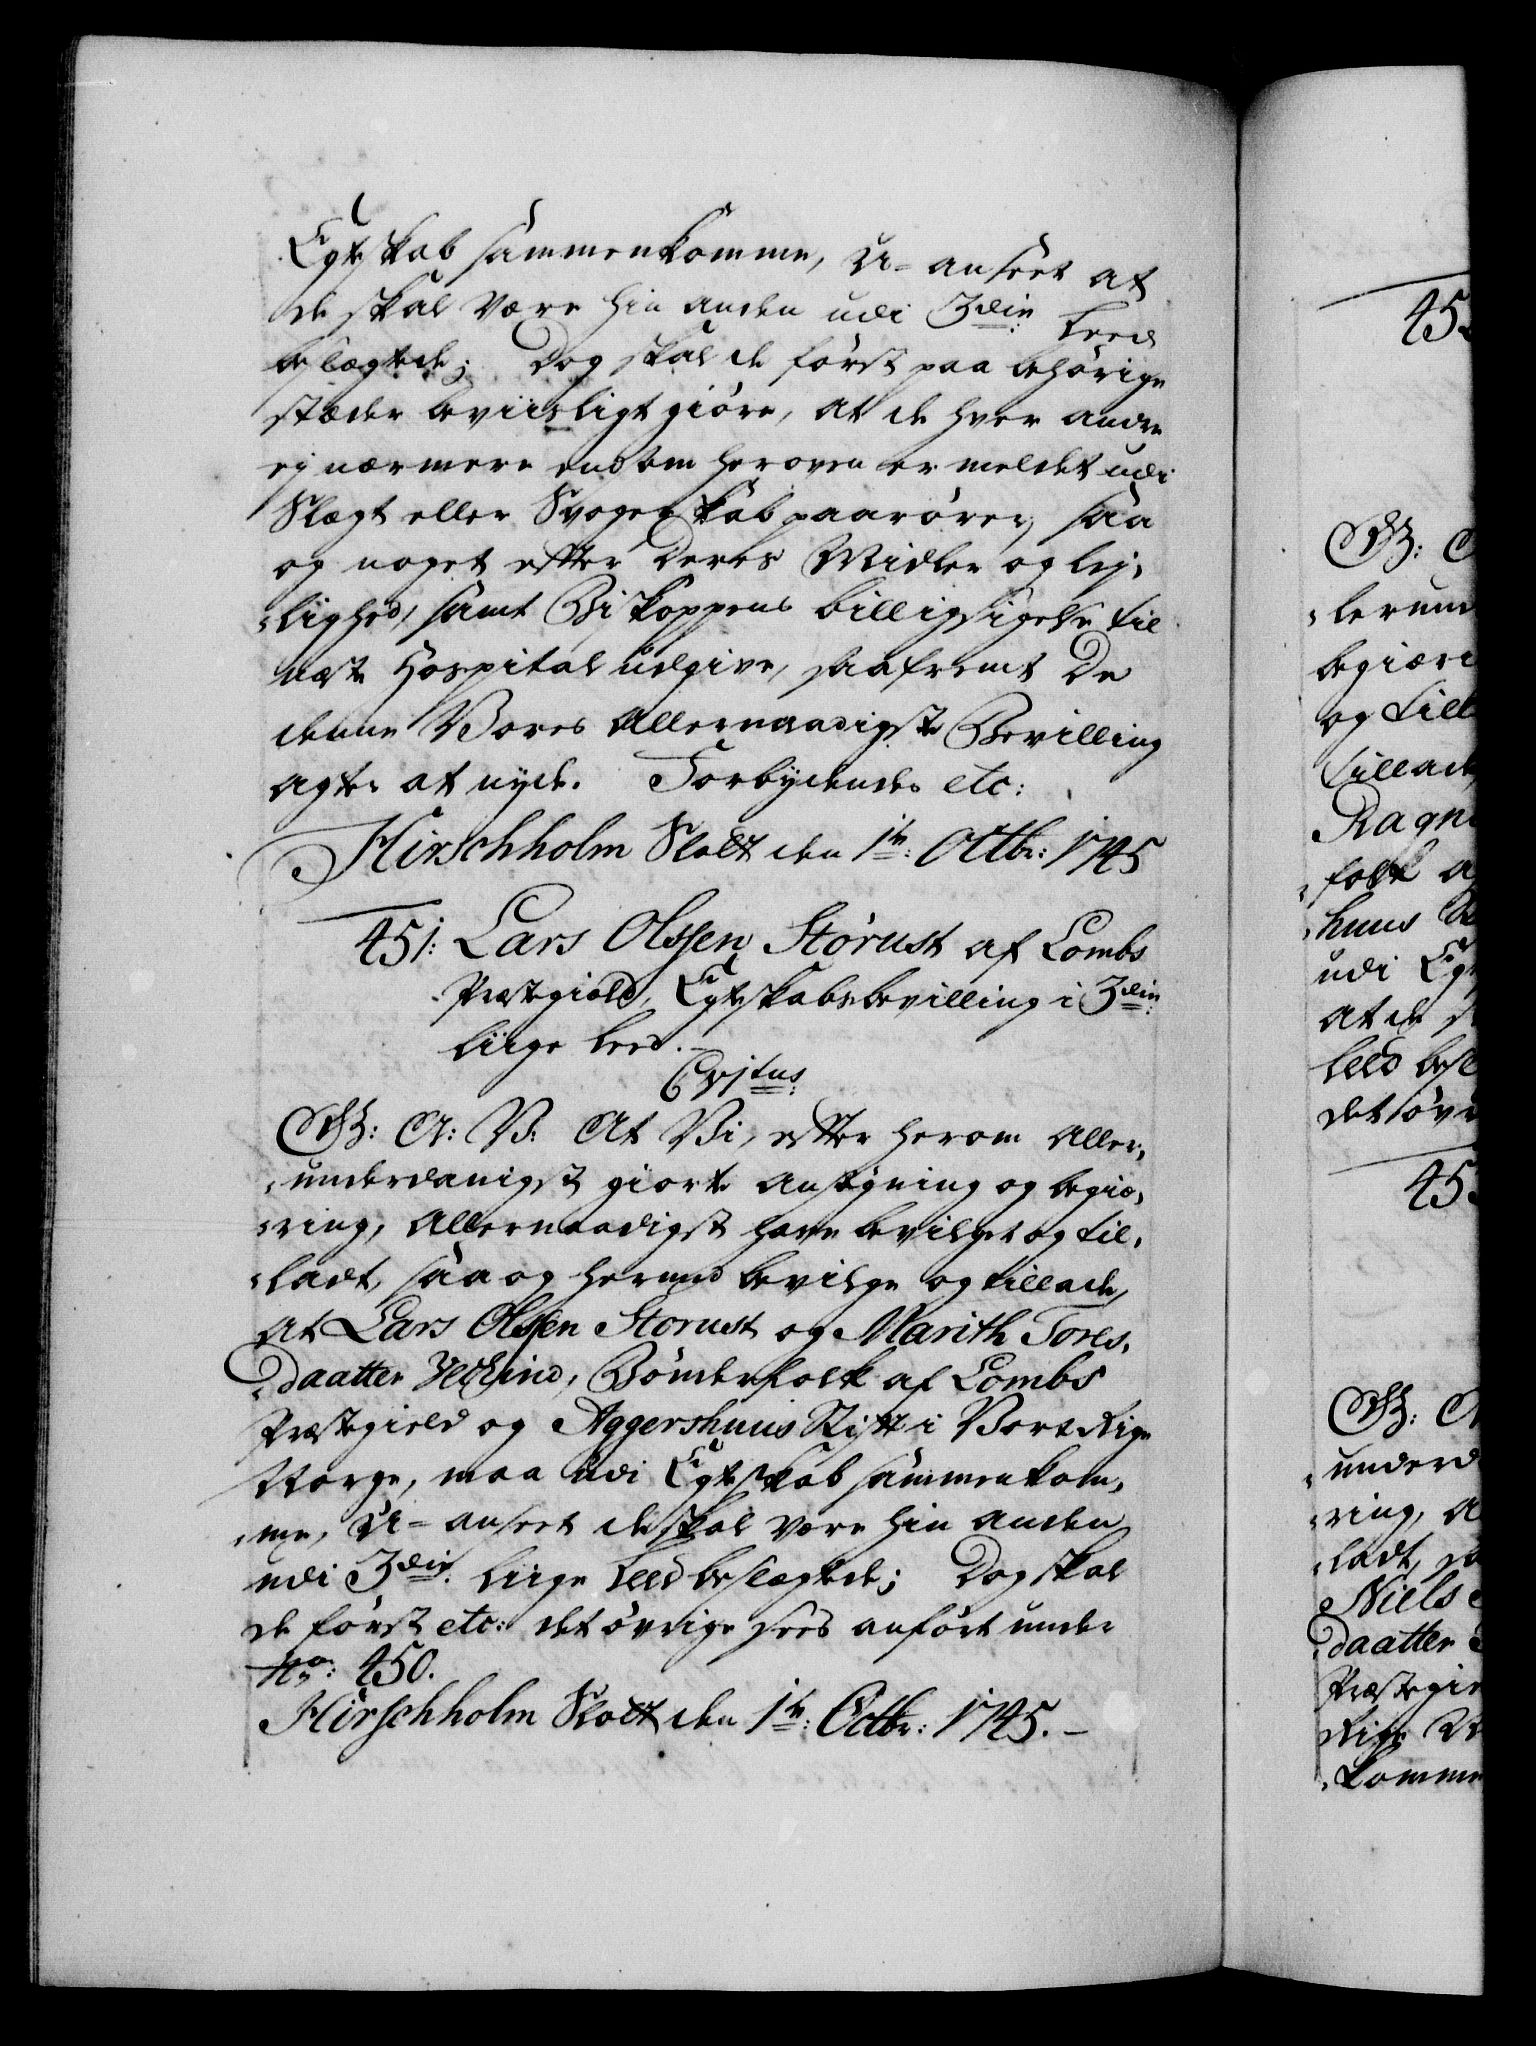 Egteskab sammenkomme, U-anseet at
de skal være hin anden udi 3die Leed
beslægtede; Dog skal de først paa behörige
stæder beviisligt giöre, at de hver andre
ej nærmere end som heroven er meldet udi
Slægt eller Svogerskab paarörer, saa
og noget efter deres Midler og lej-
-lighed, samt Biskoppens billigsigelse til
næste Hospital udgive, saafremt De
denne Vores allernaadigste Bevilling
agter at nyde. Forbydendes etc:
Hirschholm Slott den 1te: Octbr: 1745
451: Lars Olssen Störust af Lombs
Præstegield, Egteskabsbevilling i 3die
liige Leed.
Gratus
G: A: V: At Vi, efter herom aller-
-underdanigst giorte ansögning og begiæ-
-ring, allernaadigst have bevilget og til-
-ladt, saa og hermed bevilge og tillade,
at Lars Olssen Storust og Marith Tores-
-daatter, Bönderfolk af Lombs
Præstegield og Aggershuus Stift i Vort Rige
Norge, maa udi Egteskab sammenkom-
-me, U-anseet de skal være hin anden
udi 3die liige Leed beslægtede; Dog skal
de först etc: det övrige sees anfört under
No: 450.
Hirschholm Slott den 1te: Octbr: 1745.-
45
G:
-lerund
begiæri
og till
tillade
Ragn
folk a
-huus
udi Eg
at de
Leed besl
det övr
45
G: A
-underd
-ring, A
-ladt, sa
Niels
daatter
Præstegie
Rige
-komme